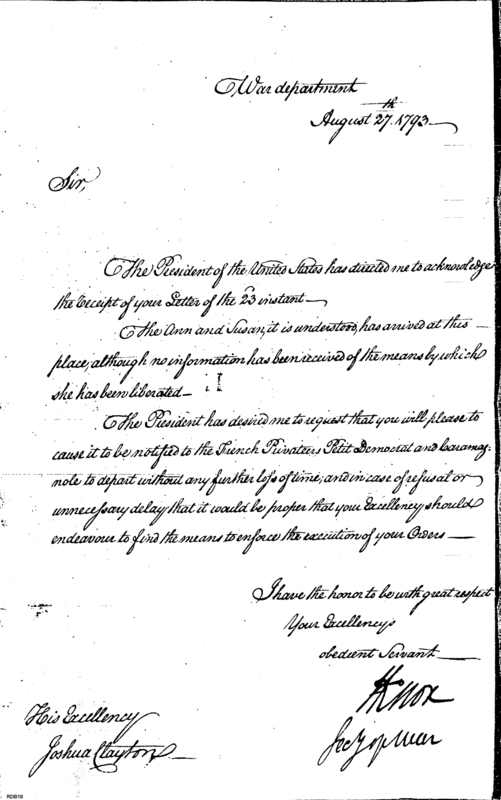 War department
August 27.th 1793
Sir,
The President of the United States has directed me to acknowledge
the receipt of your Letter of the 23 instant
The Ann and Susan, it is understood, has arrived at this
place, although no information has been received of the means by which
she has been liberated
The President has desired me to request that you will please to
cause it to be notified to the French Privateers Petit Democrat and Caramag-
nole to depart without any further loss of time, and in case of refusal or
unnecessary delay that it would be proper that your Excellency should
endeavour to find the means to enforce the execution of your Orders
I have the honor to be with great respect
Your Excellencys
obedient Servant
HKnox
Secy of War
His Excellency
Joshua Clayton
RDB18